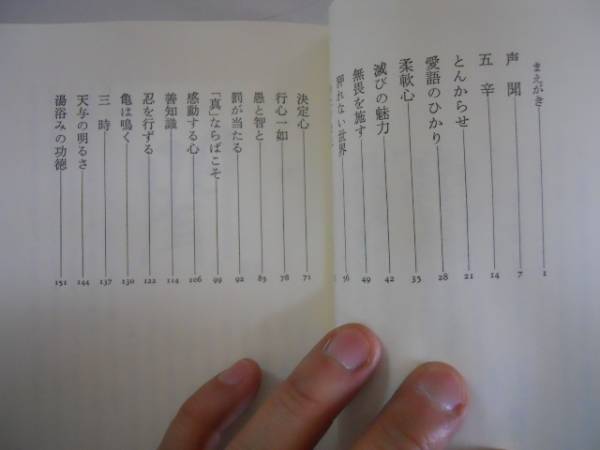 まえがき 1
声聞 7
五辛 14
とんからせ 21
愛語のひかり 28
柔軟心 35
滅びの魅力 42
無畏を施す 49
狎れない世界 56
決定心 71
行心一如 78
愚と智と 85
罰が当たる 92
「真」ならばこそ 99
感動する心 106
善知識 114
忍を行ずる 122
亀は鳴く 130
三時 137
天与の明るさ 144
湯浴みの功徳 151